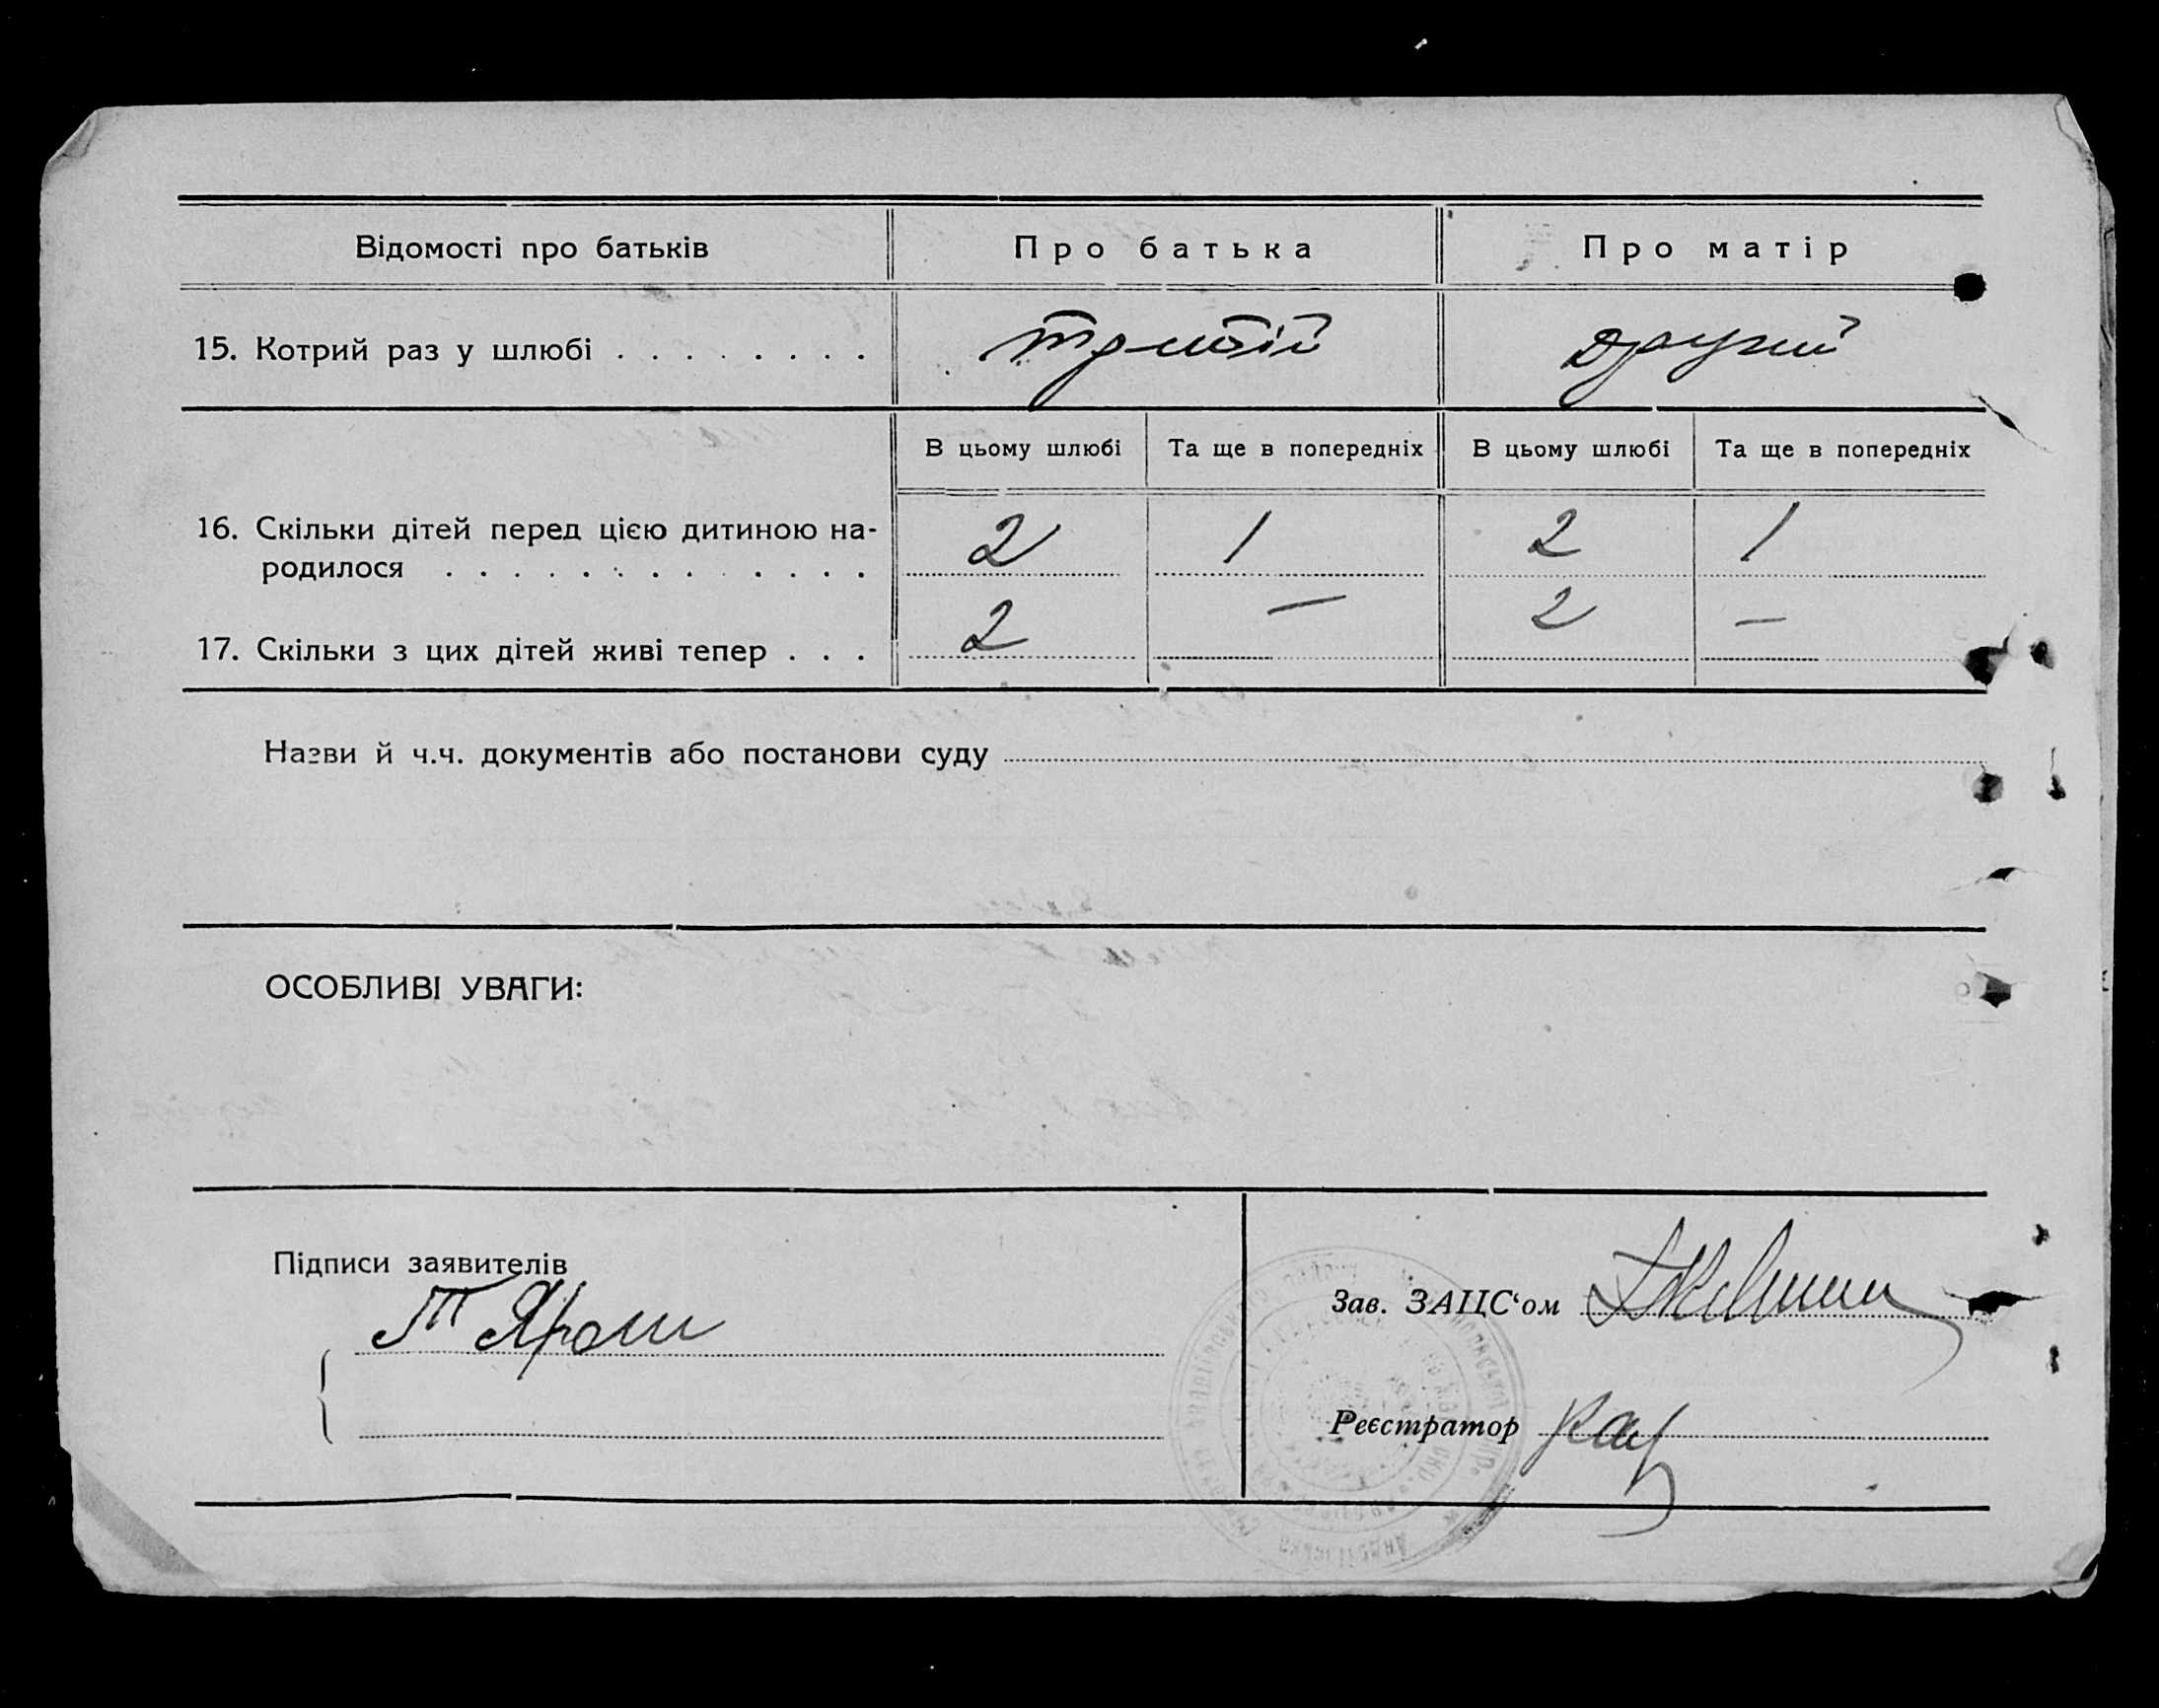 Відомості про батьків Про батька Про матір
15. Котрий раз у шлюбі . . . . . . . . третій другий
В цьому шлюбі Та ще в попередніх В цьому шлюбі Та ще в попередніх
16. Скільки дітей перед цією дитиною на-
родилося . . . . . . . . . . . . . 2 1 2 1
17. Скільки з цих дітей живі тепер . . . 2 — 2 —
Назви й ч.ч. документів або постанови суду
ОСОБЛИВІ УВАГИ:
Підписи заявителів
Т Ярош
Зав. ЗАЦС‘ом
Реєстратор